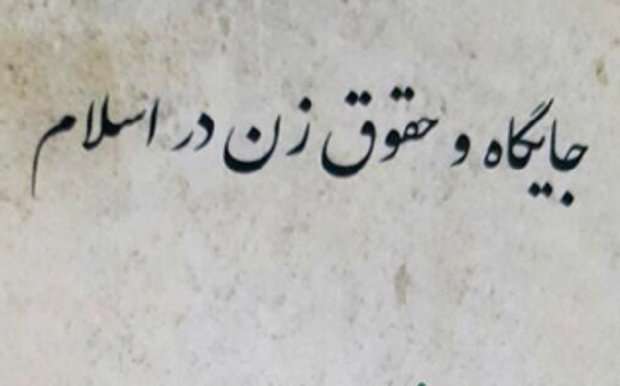 جایگاه و حقوق زن در اسلام